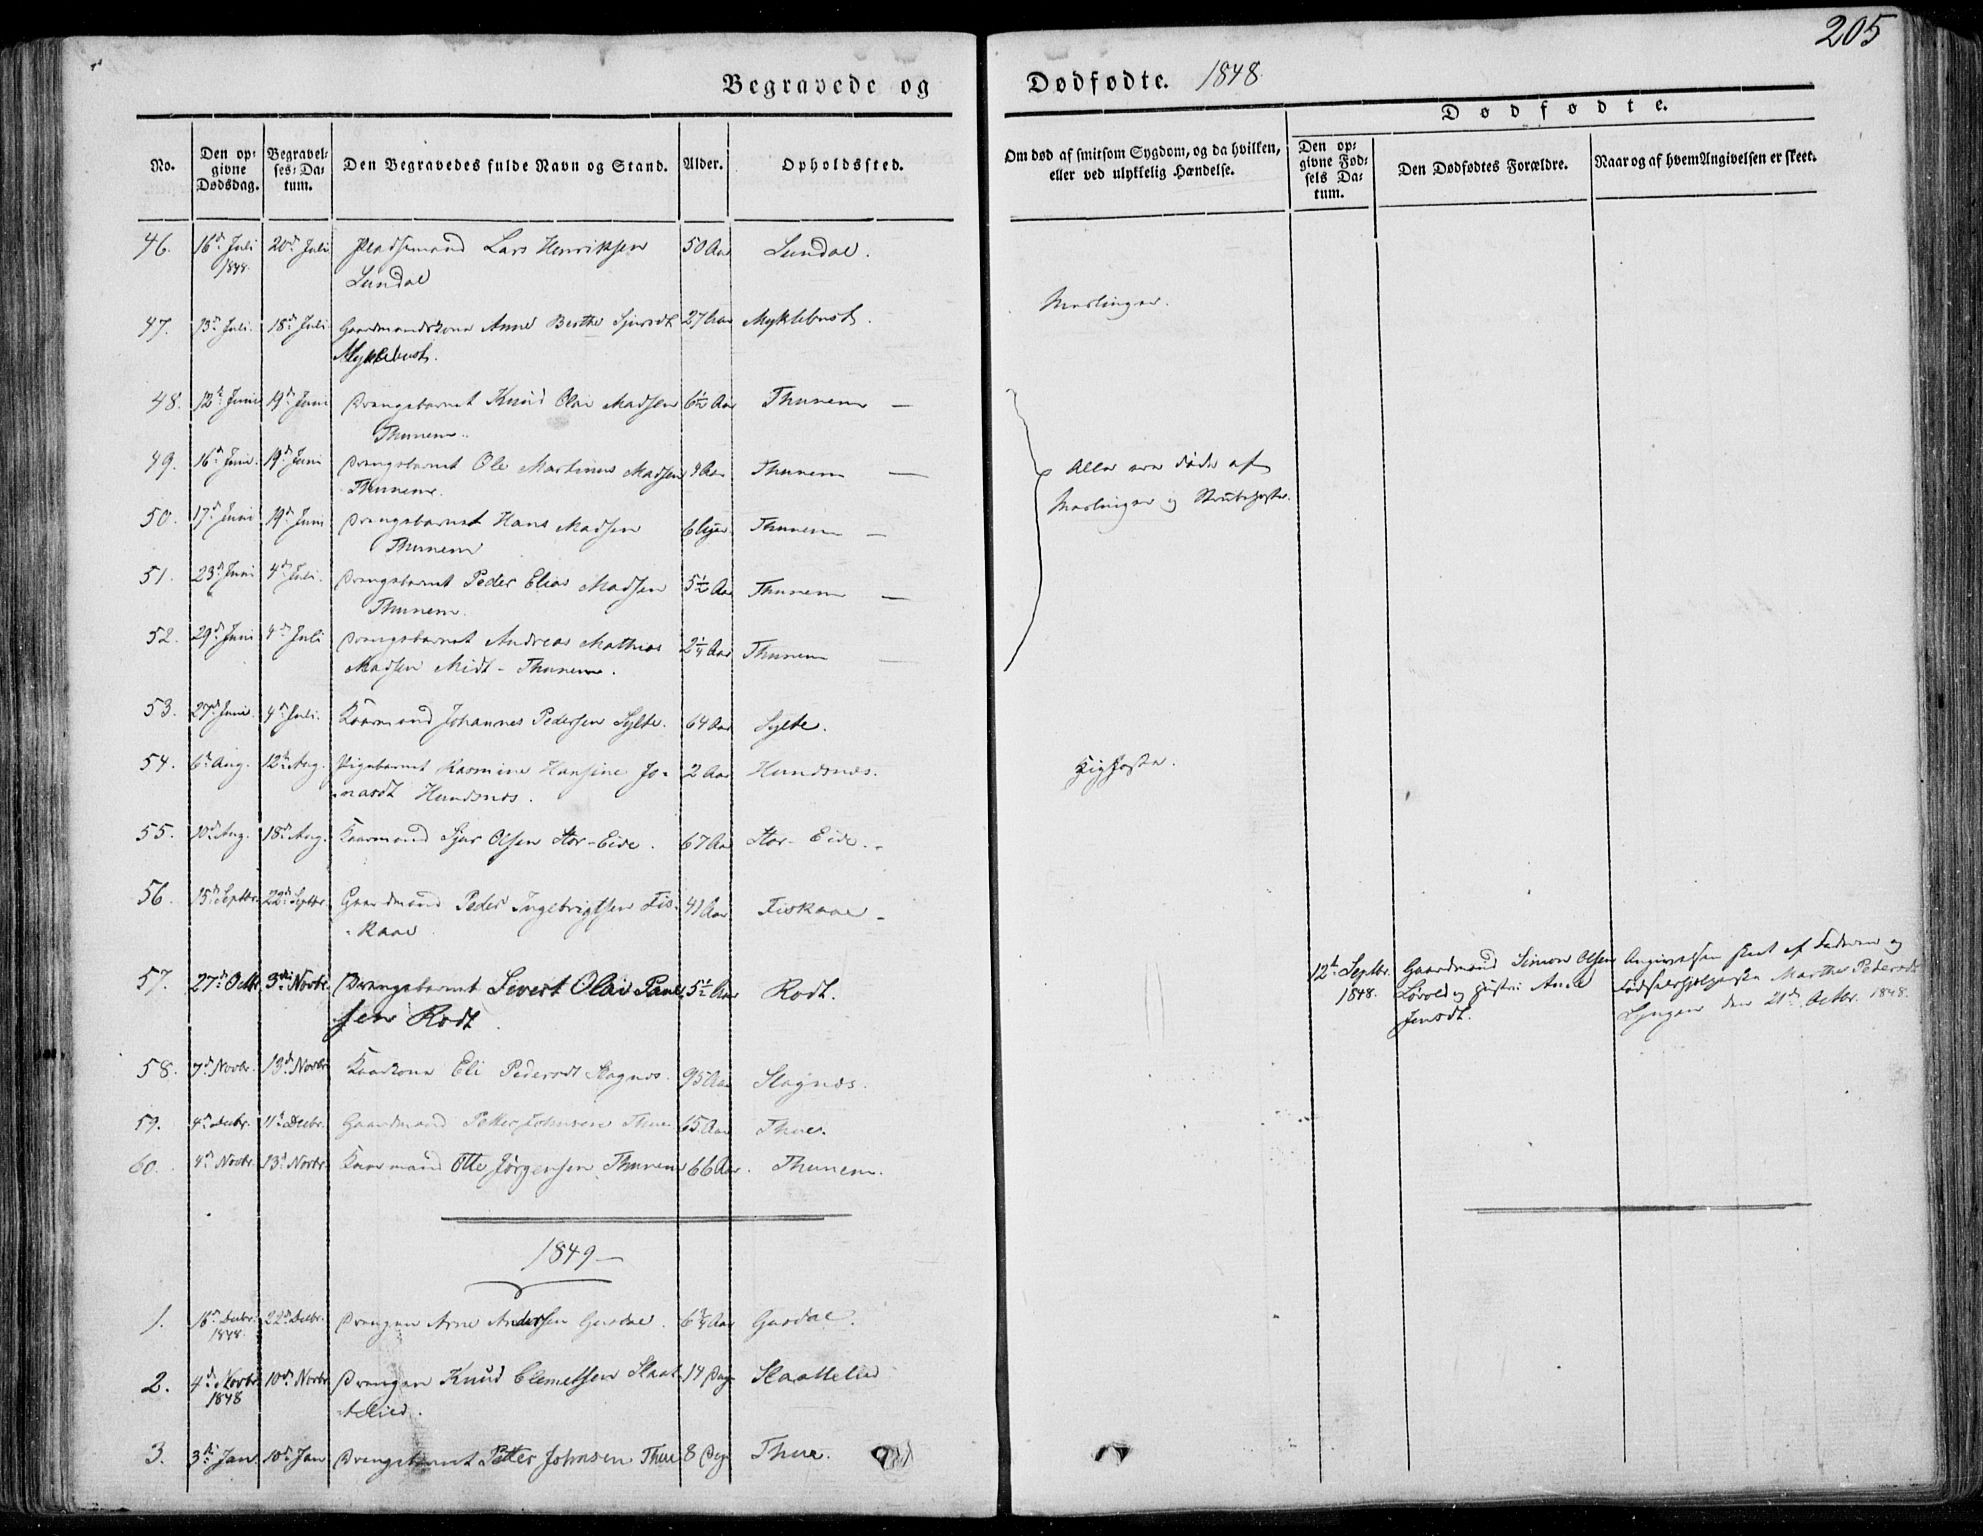 205
Begravede og Dødfødte. 1848.
No.
Den opgivne Dødsdag.
Begravelses-Datum.
Den Begravedes fulde Navn og Stand.
Alder.
Opholdssted.
Om død af smitsom Sygdom, og da hvilken, eller ved ulykkelig Hændelse.
Dødfødte.
Den opgivne Fødsels Datum.
Den Dødfødtes Forældre.
Naar og af hvem Angivelsen er skeet.
46. 16de Juli 1848. 20de Juli Pladsemand Lars Henriksen 50 Aar Lundal.
Lundal
47. 13de Juli. 18de Juli Gaardmandskone Anne Berthe Sjursdt 27 Aar Myklebust. Meslinger.
Myklebust.
48. 12te Juni 19de Juni Drengebarnet Knud Olai Madsen 6½ Aar Thunem —
Thunem.
49. 16de Juni. 19de Juni Drengebarnet Ole Martinus Madsen 4 Aar Thunem — Alle ere døde af
Thunem. Meslinger og Strubehoste.
50. 17de Juni 19de Juni Drengebarnet Hans Madsen 6 Uger Thunem —
Thunem
51. 23de Juni 4de Juli. Drengebarnet Peder Elias Madsen 5½ Aar Thunem —
Thunem.
52. 29de Juni 4de Juli Drengebarnet Andreas Mathias 2¼ Aar Thunem —
Madsen Midt-Thunem.
53. 27de Juni. 4de Juli. Kaarmand Johannes Pedersen Sylte. 64 Aar Sylte.
54. 6te Aug. 12te Aug. Pigebarnet Rasmine Hansine Jo- 2 Aar Hundsnæs. Kighoste.
nasdt Hundsnæs.
55. 10de Aug. 18de Aug. Kaarmand Sjur Olsen Stor-Eide. 67 Aar Stor-Eide.
56. 15de Septbr. 22de Septbr. Gaardmand Peder Ingebrigtsen Fis- 41 Aar Fiskaae
kaae
57. 27de Octbr 3die Novbr. Drengebarnet Sivert Olai Paul- 5½ Aar Rodt.
sen Rodt.
12te Septbr. 1848. Gaardmand Simon Olsen
Løvold og Hustru Ane
Jensdt.
Angivelsen skeet af Faderen og
Fødselshjelperske Marthe Pedersdt
Lyngen den 21de Octbr. 1848.
58. 7de Novbr. 13de Novbr Kaarkone Eli Pedersdt Slagnæs. 95 Aar Slagnæs.
59. 4de Decbr. 11te Decbr. Gaardmand Petter Johnsen Thue 65 Aar Thue.
60. 4de Novbr. 13de Novbr. Kaarmand Otte Jørgensen Thunem 66 Aar. Thunem.
1849 —
1. 16de Decbr. 1848. 22de Decbr. Drengen Arne Andersen Gusdal. 6¾ Aar Gusdal.
2. 4de Novbr. 1848 10de Novbr. Drengen Knud Clemetsen Slaat- 14 Dage Slaattelied
telied.
3. 3die Jan. 10de Jan Drengebarnet Petter Johnsen Thue 8 Dage Thue.